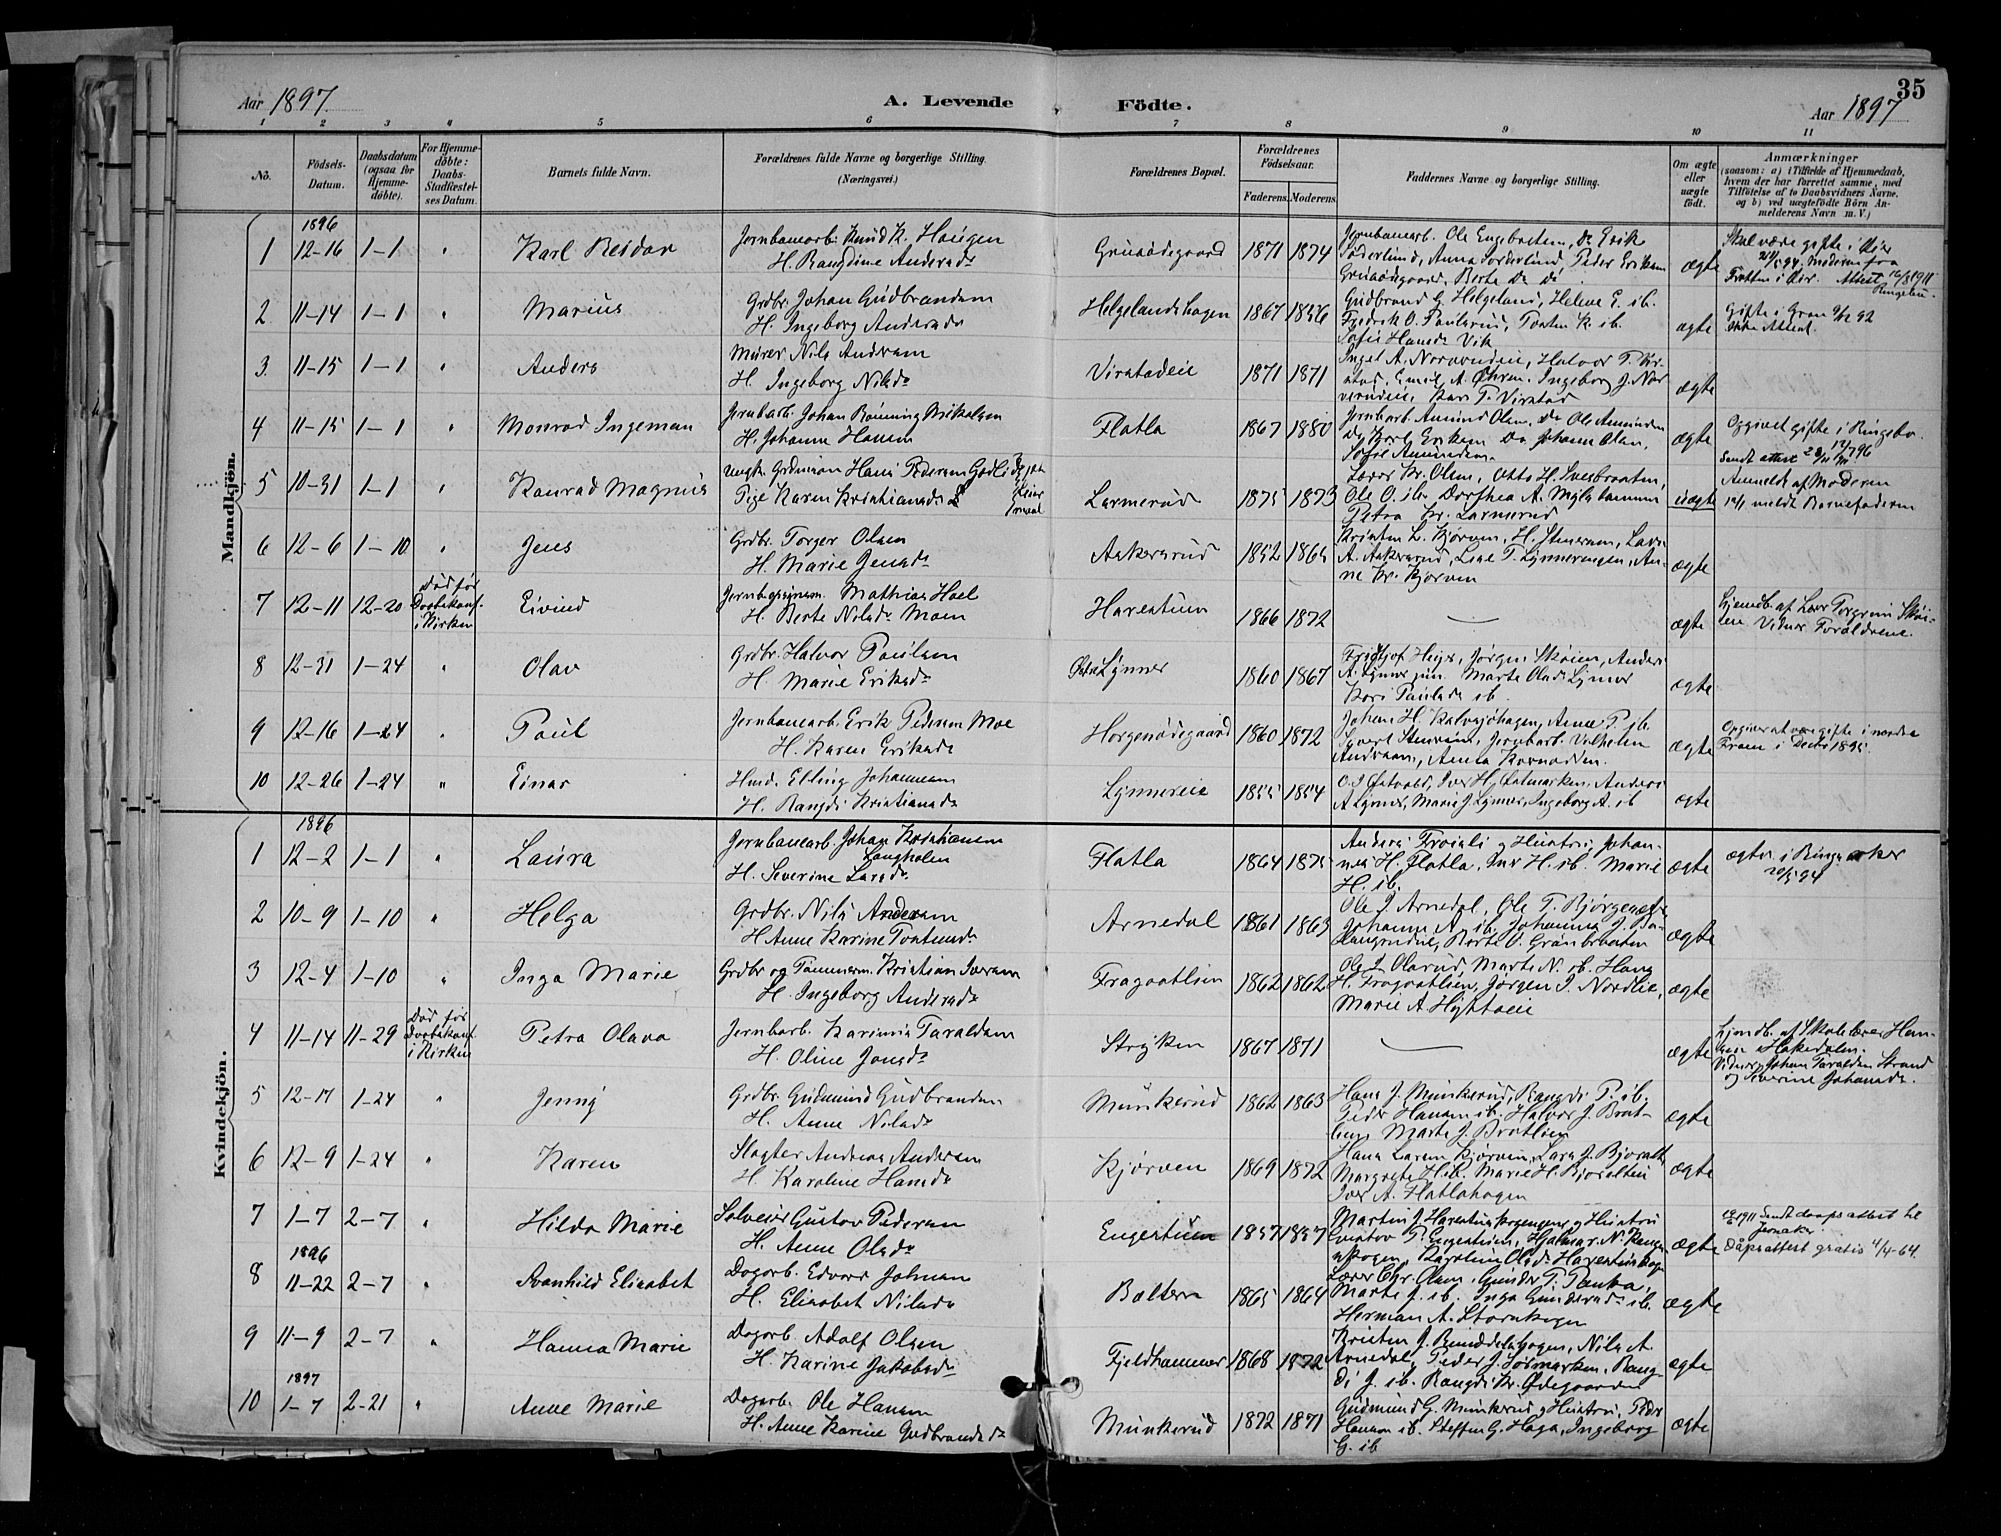 Aar 1897. A. Levende Födte. Aar 1897 35
1 2 3 4 5 6 7 8 9 10 11
No. Födsels-Datum. Daabsdatum (ogsaa for Hjemme-döbte). For Hjemme-döbte: Daabs-Stadfæstel-ses Datum. Barnets fulde Navn. Forældrenes fulde Navne og borgerlige Stilling. (Næringsvei.) Forældrenes Bopæl. Forældrenes Födselsaar. Faderens. Moderens. Faddernes Navne og borgerlige Stilling. Om ægte eller uægte födt. Anmærkninger (saasom: a) i Tilfælde af Hjemmedaab, hvem der har forrettet samme, med Tilföielse af to Daabsvidners Navne. og b) ved uægtefödte Börn An-melderens Navn m. V.)
Mandkjön.
1896
1 12-16 1-1 " Karl Reidar Jernbanearb. Knud K. Haugen
H. Rangdine Andersdr Gruaödegaard 1871 1874 Jernbanearb. Ole Engebretsen, Do Erik
Söderlund, Anna Sorderlund, Peder Eriksen
Gruaödegaard, Berte Do do ægte
2 11-14 1-1 " Marius Grdbr. Johan Gudbrandsen
H. Ingeborg Andersdr Helgelandshagen 1867 1856 Gudbrand G. Helgeland, Helene E. ib.
Fredrik O. Paulsrud, Torsten K. ib.
Sofie Hansdr Vik ægte Gifte i Gran
3. 11-15 1-1 " Anders Murer Nils Andersen
H. Ingeborg Nilsdr Virstadeie 1871 1871 Kari T. Virstad ægte
4 11-15 1-1 " Monrad Ingeman Jernbarb. Johan Rönning Mikelsen
H. Johanne Hansen Flatla 1867 1880 Jernbarb. Amund Olsen, Do Ole Amundsen
Do Karl Eriksen Do Johan Olsen,
Sofie Amundsen. ægte Opgivet gifte i Ringebo
5 10-31 1-1 " Konrad Magnus Ungk. Grdmann Hans Pedersen
Pige Karen Kristiansdr Larmerud 1875 1873 Lærer Kr. Olsen, Otto H. Svesbraaten,
Ole O. ib. Dorthea A.
Petra Kr. Larmerud uægte Anmeldt af Moderen
12/1 meldt Barnefaderen
6 12-6 1-10 " Jens Grdbr. Torger Olsen
H. Marie Jensdr Aakersrud 1852 1865 Kristen L. Kjørven, H. Stensrum, Lars
A. Aakersrud, Lise T. Lynnerengen, An-
ne Kr. Kjørven ægte
7 12-11 12-20 Död før
Daabsbekræf.
i Kirken Eivind Mathias Hoel
H. Berte Nilsdr Moen Harestuen 1866 1872 — ægte Hjemdb. af Lærer Torgrim Skøi-
en Vidner Forældrene.
8 12-31 1-24 " Olav Grdbr. Halvor Paulsen
H. Marie Eriksdr Østre Lynner 1860 1867 Fridtjof Heyer, Jørgen Skøien, Anders
A. Lynner jun. Marte Olsdr Lynner
Kari Paulsdr ib. ægte
9 12-16 1-24 " Paul Jernbanearb. Erik Pedersen Moe
H. Karen Eriksdr Horgenödegaard 1860 1872 Johan H. Kalvsjöhagen, Anne P. ib.
Jernbarb. Vilhelm
Andersen, Anna ægte Opgiver at være gifte i nordre
Fron i Decbr 1895.
10 12-26 1-24 " Einar Husmd. Elling Johannesen
H. Rangdi Kristiansdr Lynnereie 1855 1854 O. J. Østvold, Iver H. Østmarken, Anders
A Lynner, Marie J. Lynner, Ingeborg A. ib ægte
Kvindekjön.
1896
1 12-2 1-1 " Laura Jernbanearb. Johan Kristiansen
Langholen
H. Severine Larsdr Flatla 1864 1875 Anders Froisli og Hustru, Johan-
nes H. Flatla, H. ib. Marie
H. ib. ægte
2 10-9 1-10 " Helga Grdbr. Nils Andersen
H Anne Karine Torstensdr Arnedal 1861 1863 Ole J. Arnedal, Ole T. Bjørge
Johanne A ib. Johannes J.
Berte O. Grønbraaten ægte
3 12-4 1-10 " Inga Marie Grdbr og Tømmerm. Kristian Iversen
H. Ingeborg Andersdr Fragaatlien 1862 1862 Ole J. Olsrud, Marte N. ib. Hans
H. Fragaatlien, Jørgen I. Nordlie,
Marie A ægte
4 11-14 11-29 Död før
Daabsbekræf.
i Kirken Petra Olava Jernbarb. Karinius Taraldsen
H. Oline Jonsdr Stryken 1867 1871 — ægte Hjemdb. af Skolelærer Han-
sen i Hakedalen.
Vidner Johan Taraldsen Strand
og Severine Johansdr.
5 12-17 1-24 " Jenny Grdbr. Gudmund Gudbrandsen
H. Anne Nilsdr Munkerud 1862 1863 Hans J. Munkerud, Rangdi P. ib.
Peder Hansen ib. Halvor J. Brat-
lien, Marte J. Bratlien ægte
6 12-9 1-24 " Karen Slagter Andreas Andersen
H. Karoline Hansdr Kjørven 1869 1872 Hans Larsen Kjørven, Lars J.
Margrete H. ib. Marie H.
Iver A. Flatlahagen ægte
7 1-7 2-7 " Hilda Marie Gustav Pedersen
H. Anne Olsdr Engerstuen 1857 1857 Martin J. Harestuhagen og Hustru
Gustav P. Engerstuen, Hjalmar N.
Karoline Olsdr ægte Sendt daapsattest til
Jevnaker
Dåpsattest gratis 4/4-64.
1896
8 11-22 2-7 " Svanhild Elisabet Dagarb. Edvard Johnsen
H. Elisabet Nilsdr Boltern 1865 1864 Lærer Chr. Olsen, Gunder P. Panka,
Marte J. ib. Inga Gundersdr ib.
Herman A. ægte
9 11-9 2-7 " Hanna Marie Dagarb. Adolf Olsen
H. Karine Jakobsdr Fjeldhammer 1868 1872 Kristen J. Nils A.
Arnedal, Peder J. Sørmarken, Rang-
di J. ib. Rangdi Kr. Ødegaarden ægte
1897
10 1-7 2-21 " Anne Marie Dagarb. Ole Hansen
H. Anne Karine Gudbrandsdr Munkerud 1872 1871 Gudmund G. Munkerud og Hustru, Peder
Hansen ib. Steffen G. Haga, Ingeborg
G. ib ægte